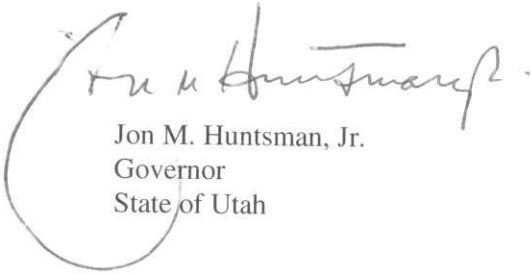 Jon M Huntsman Jr.
Jon M. Huntsman, Jr.
Governor
State of Utah